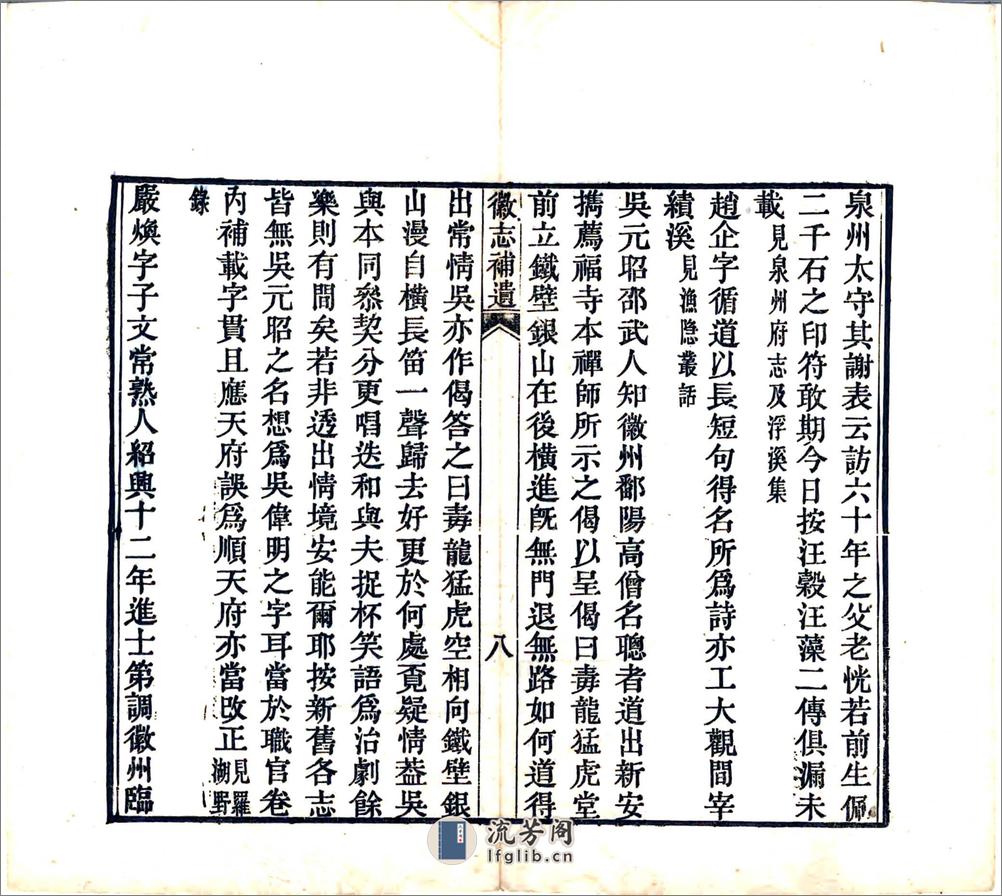 泉州太守其謝表云訪六十年之父老恍若前生佩
二千石之印符敢期今日按汪縠汪藻二傳俱漏未
載見泉州府志及浮溪集
趙企字循道以長短句得名所爲詩亦工大觀間宰
績溪見漁隱叢話
吳元昭邵武人知徽州鄱陽高僧名聰者道出新安
擕薦福寺本禪師所示之偈以呈偈曰毒龍猛虎堂
前立鐵壁銀山在後橫進旣無門退無路如何道得
徽志補遺 八
出常情吳亦作偈答之曰毒龍猛虎空相向鐵壁銀
山漫自橫長笛一聲歸去好更於何處覔疑情葢吳
與本同叅契分更唱迭和與夫捉杯笑語爲治劇餘
樂則有間矣若非透出情境安能爾耶按新舊各志
皆無吳元昭之名想爲吳偉明之字耳當於職官卷
內補載字貫且應天府誤爲順天府亦當改正見羅湖野
錄
嚴煥字子文常熟人紹興十二年進士第調徽州臨
流芳阁
lfglib.cn